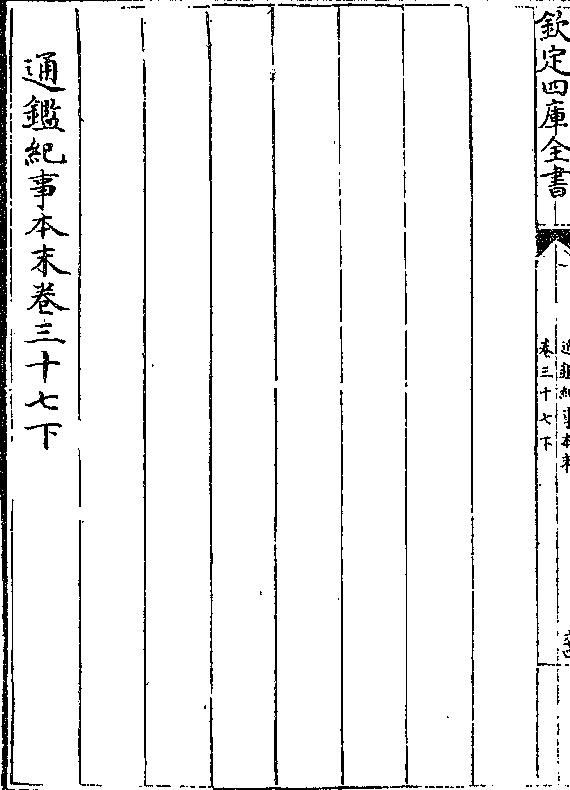 欽定四庫全書
通鑑紀事本末
卷三十七下
通鑑紀事本末卷三十七下